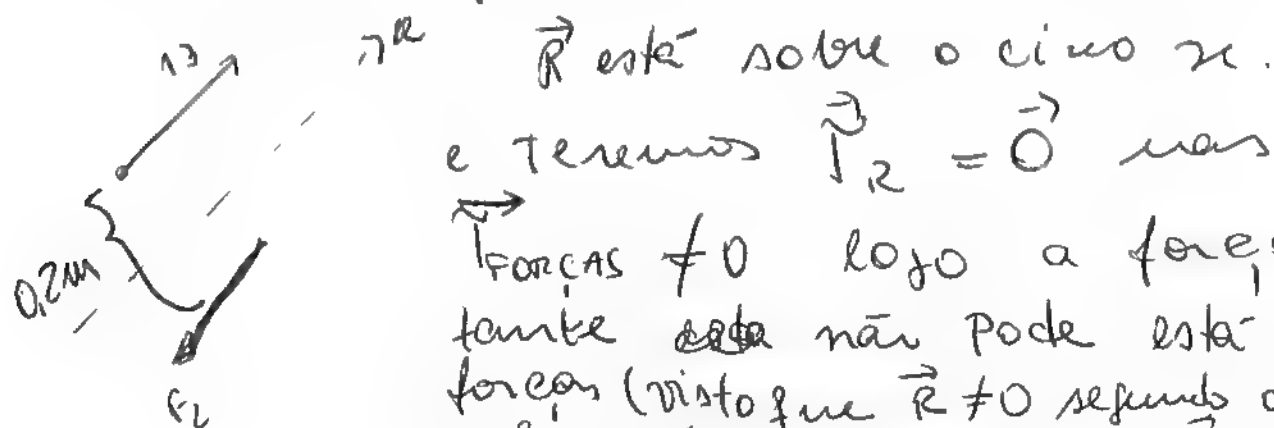 R⃗ está sobre o eixo x.
e teremos τ⃗_R = 0⃗ mas
τ⃗_FORÇAS ≠ 0 logo a forç
tante não Pode está
forças (visto que R⃗ ≠ 0 segundo o
R
0,2m
F2